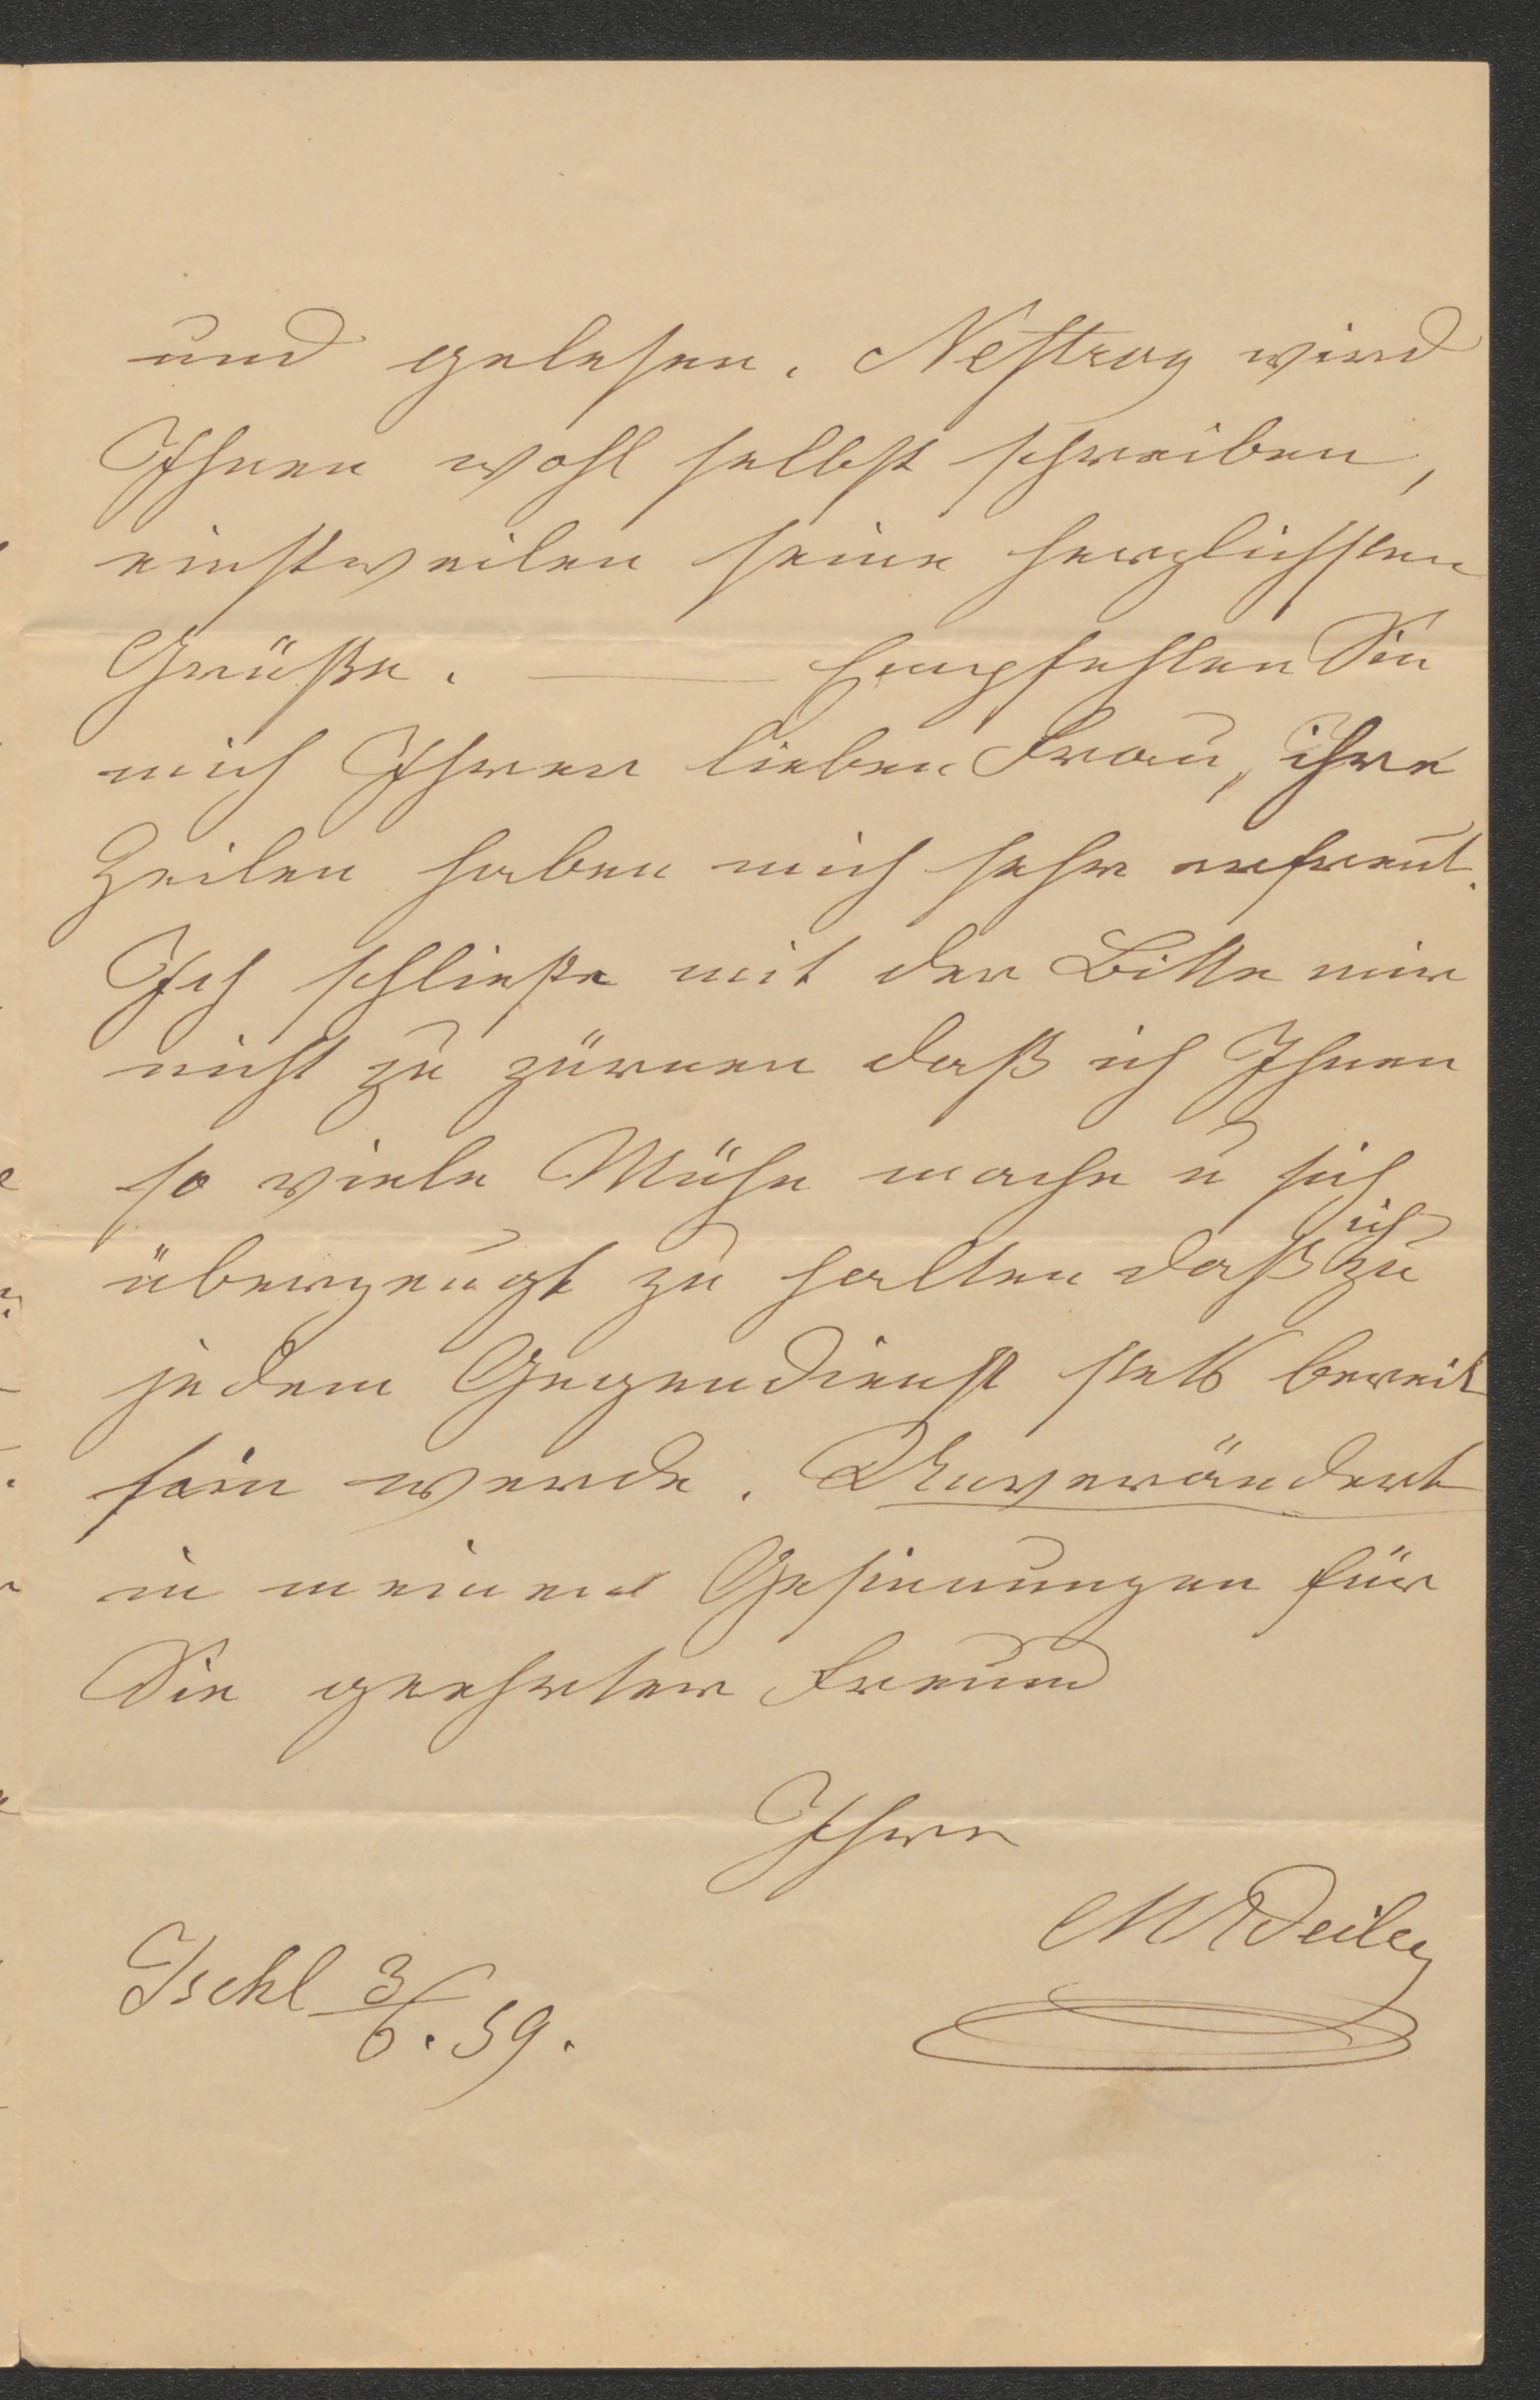 und gelesen. Nestroy wird
Ihnen wohl selbst schreiben,
einstweilen seine herzlichsten
Grüße. — Empfehlen Sie
mich Ihrer lieben Frau, ihre
Zeilen haben mich sehr erfreut.
Ich schließe mit der Bitte mir
nicht zu zürnen daß ich Ihnen
so viele Mühe mache u sich
überzeugt zu halten daß ich zu
jedem Gegendienst stets bereit
sein werde. Unverändert
in meinen Gesinnungen für
Sie geehrter Freund
Ihre
MWeiler
Ischl 3/6. 59.